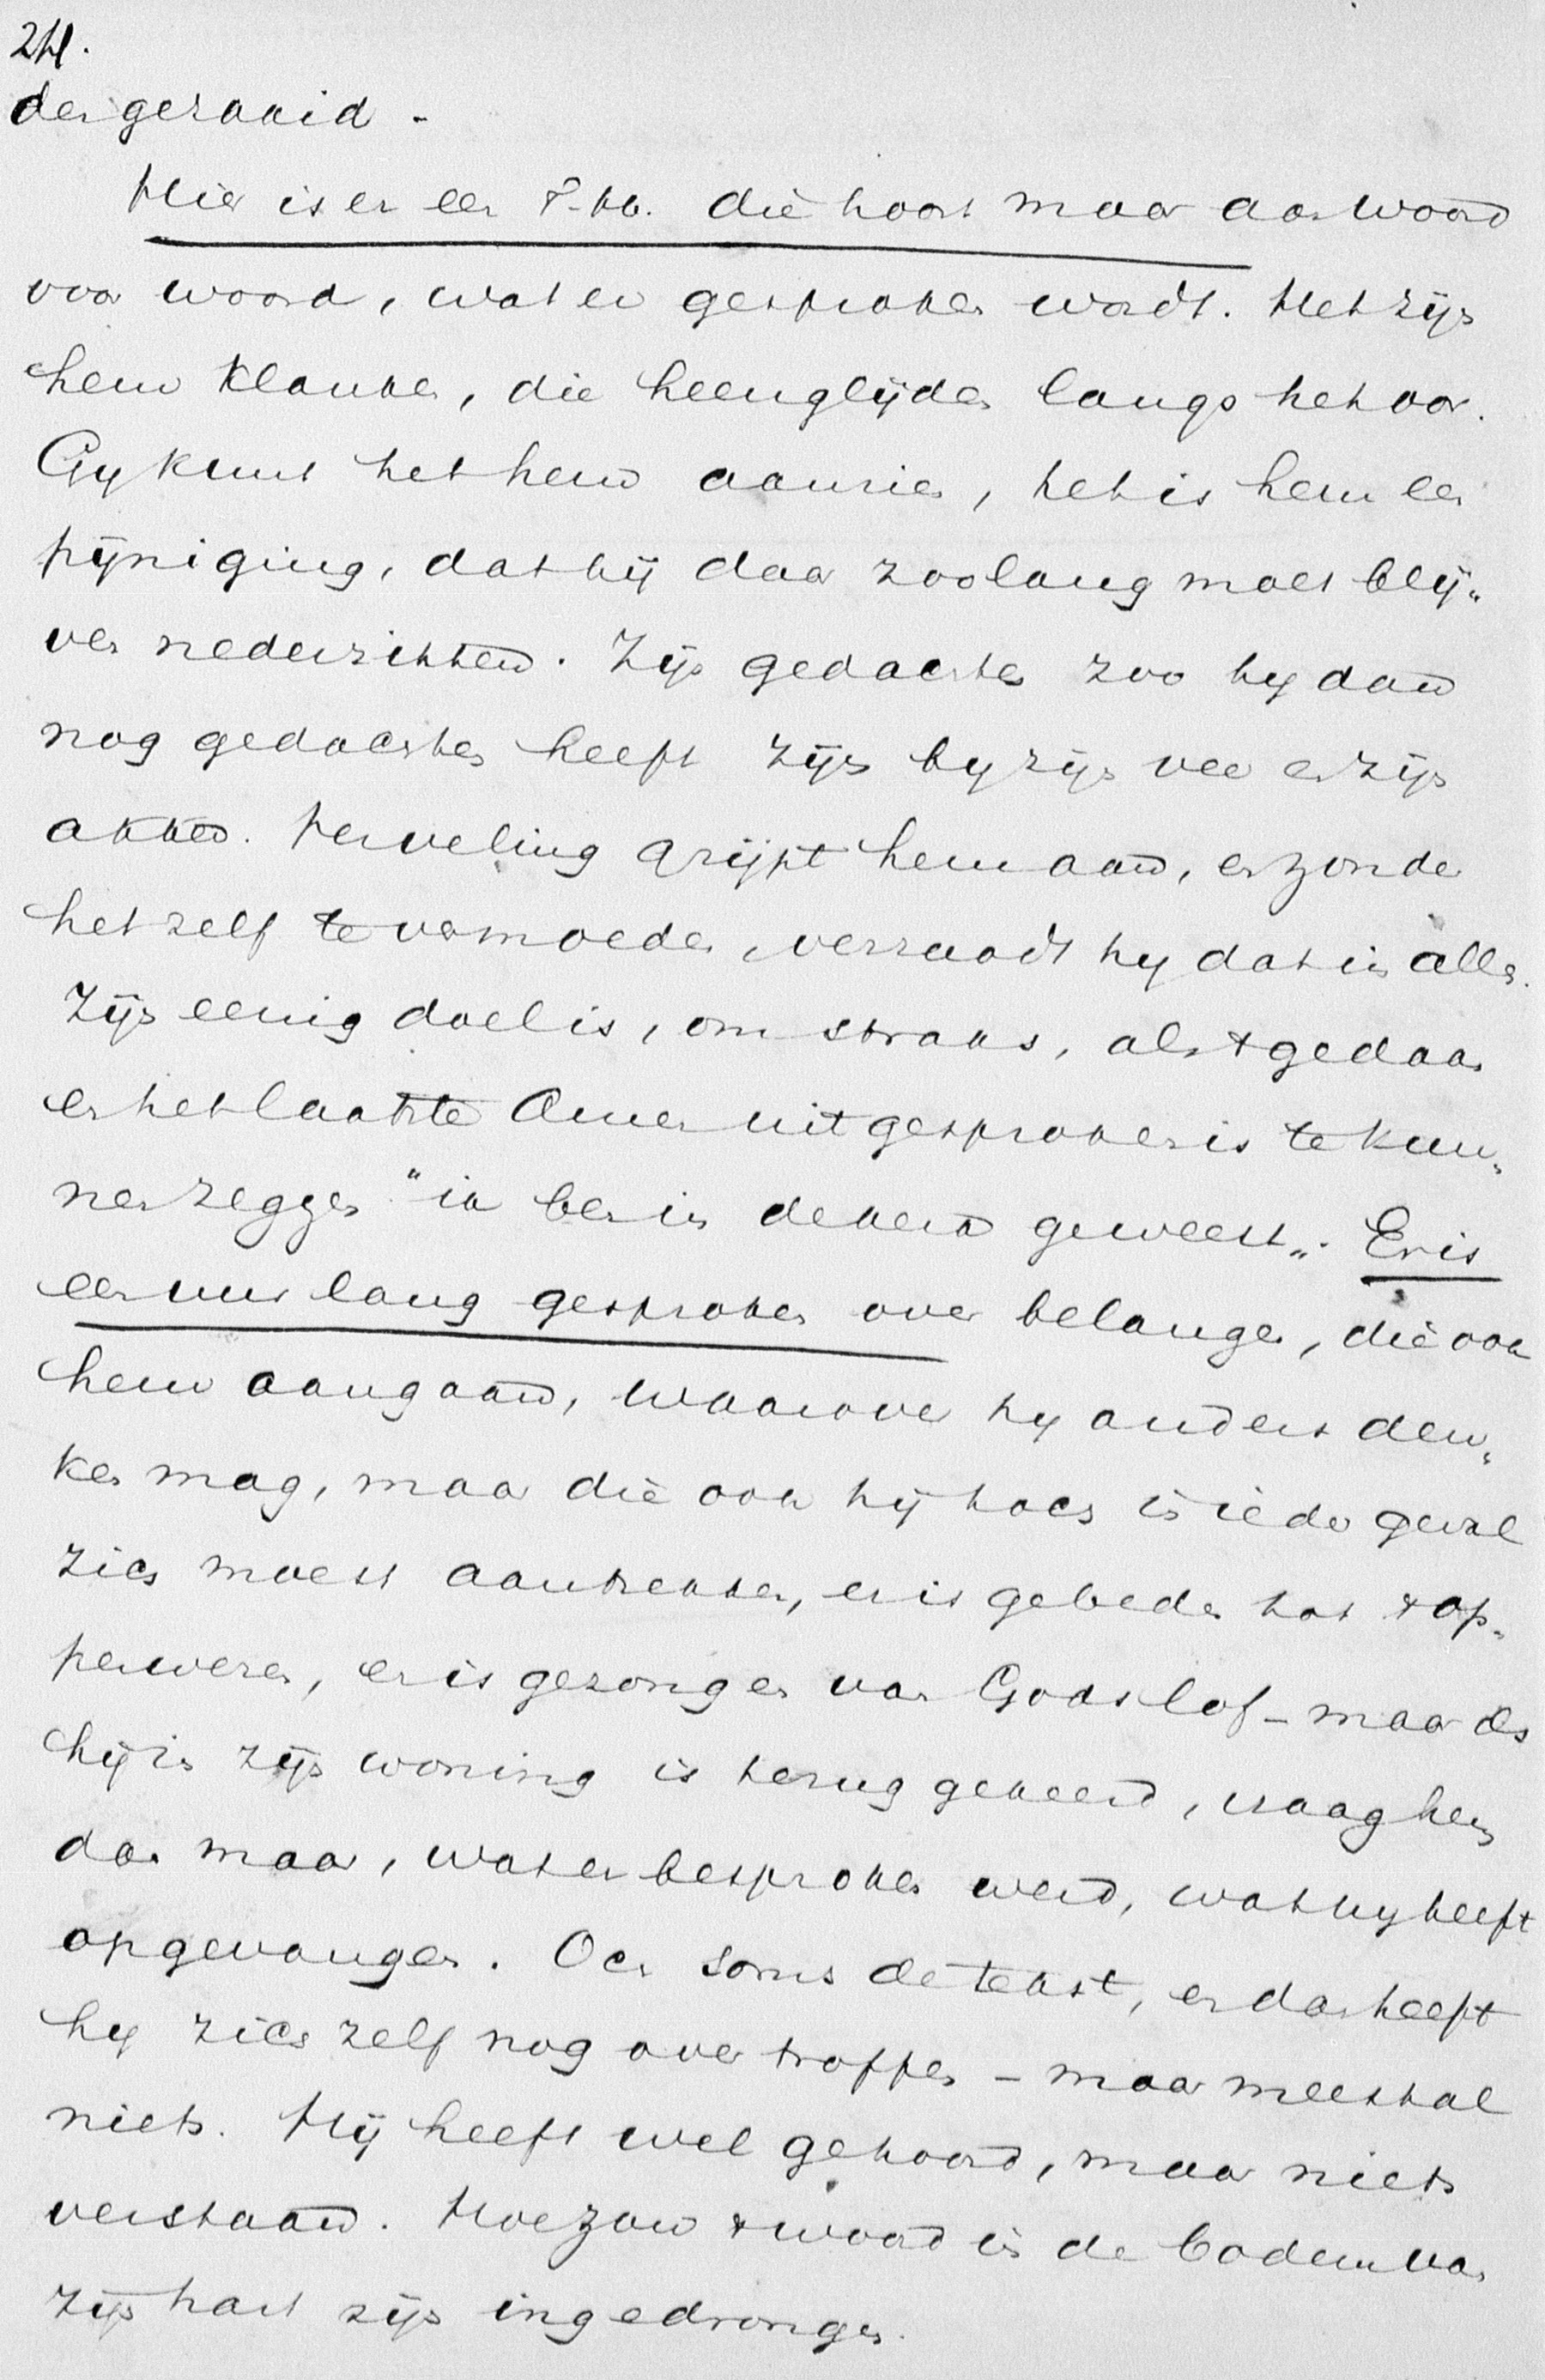 24.
der gezaaid -
Hier is er een t.w. die hoort maar aan woord
voor woord, wat er gesproken wordt. Het zijn
hem klanken, die heenglijden langs het oor.
Gy kunt het hem aanzien, het is hem een
pijniging, dat hij daar zoolang moet blij„
ven nederzitten. Zijn gedachten zoo hy dan
nog gedachten heeft zijn by zijn vee en zijn
akker. Verveling grijpt hem aan, en zonder
het zelf te vermoeden, verraadt hy dat in alles.
Zijn eenig doel is, om straks, als 't gedaan
en het laatste Amen uitgesproken is te kun„
nen zeggen "ik ben in de kerk geweest„. Er is
een uur lang gesproken over belangen, die ook
hem aangaan, waarover hy anders den„
ken mag, maar die ook hij toch in ieder geval
zich moest aantrekken, er is gebeden tot 't Op„
perwezen, er is gezongen van Gods lof - maar als
hij in zijn woning is terug gekeerd, vraag hem
dan maar, wat er besproken werd, wat hy heeft
opgevangen. Och soms de tekst, en dan heeft
hy zich zelf nog overtroffen - maar meestal
niets. Hij heeft wel gehoord, maar niets
verstaan. Hoe zou 't woord in de bodem van
zijn hart zijn ingedrongen.